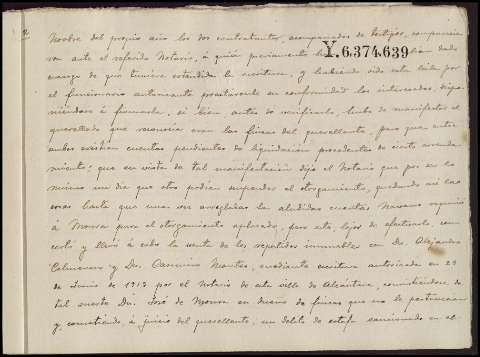 2
Y.6.374.639
Novbre del propio año los dos contratantes, acompañados de testigos, comparecie
ron ante el referido Notario, á quien previamente dado
encargo de que tuviera estendida la escritura, y habiendo sido esta leida por
el funcionario autorizante prestáronle su conformidad los interesados, dispo
niéndose á firmarla, si bien antes de verificarlo, hubo de manifestar el
querellado que eran las fincas del querellante, pero que entre
ambos existian cuentas pendientes de liquidación procedentes de cierto arrenda
miento; que en vista de tal manifestación dijo el Notario que por ser lo
mismo un dia que otro podian suspender el otorgamiento, quedando asi las
cosas hasta que una vez arregladas las aludidas cuentas Navarro requirió
á Monsa para el otorgamiento aplazado, pero este, lejos de efectuarlo, con
certó y llevó á cabo la venta de los repetidos inmuebles con Dn. Alejandro
y Dn. Casimiro Montes, mediante escritura autorizada en 23
de Junio de 1913 por el Notario de esta villa de Alcántara, convirtiéndose de
tal suerte Dn. José de Monsa en dueño de fincas que no le pertenecian
y, cometiendo, á juicio del querellante, un delito de estafa sancionado en el